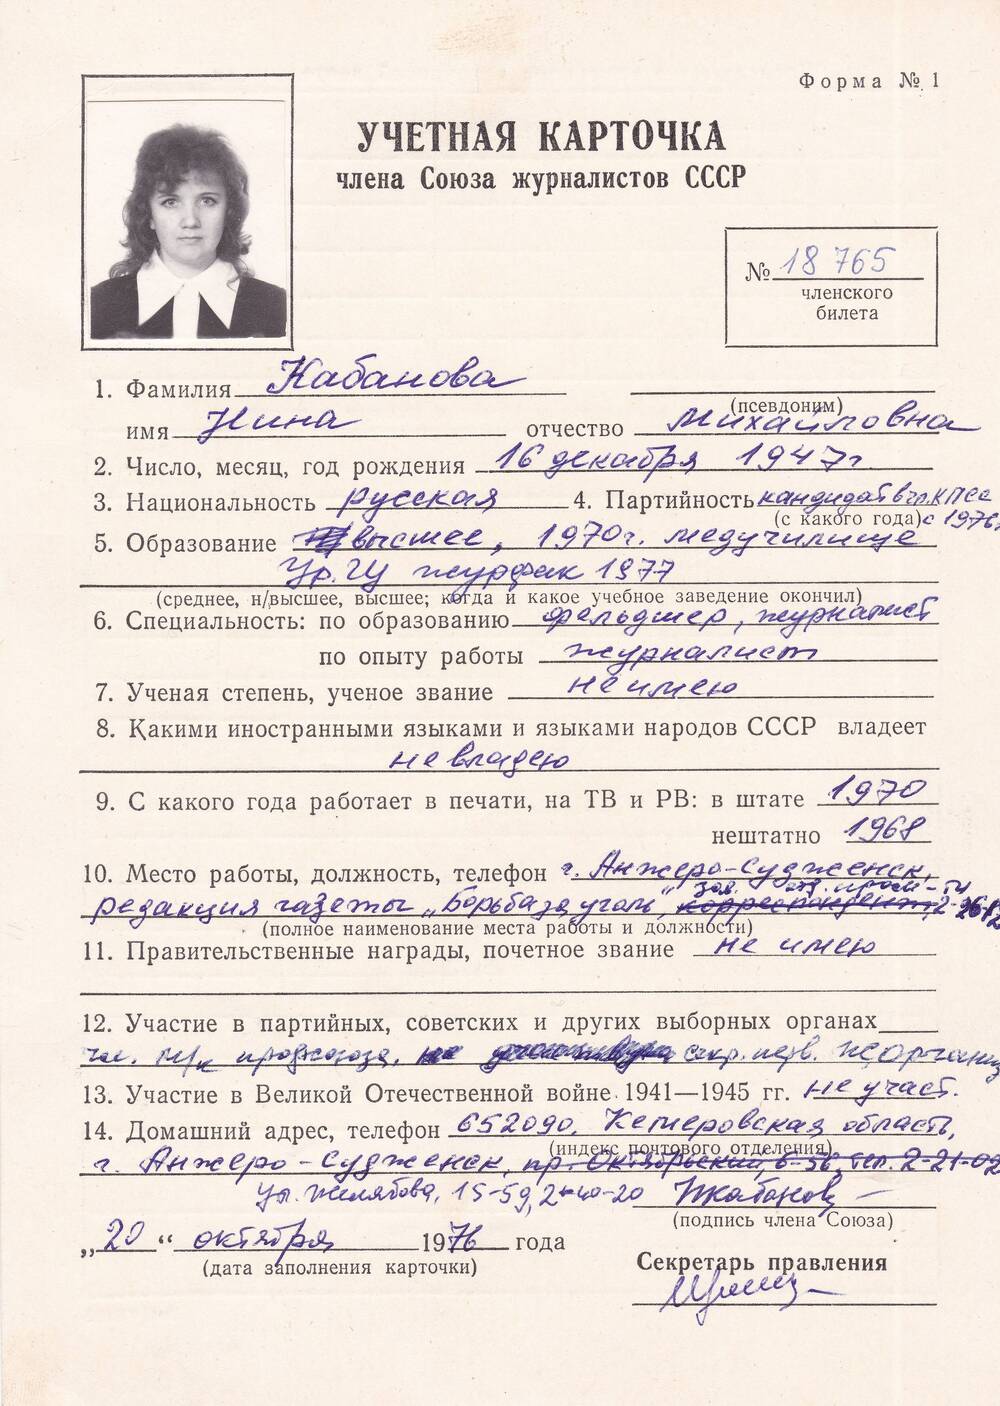 Форма № 1
УЧЕТНАЯ КАРТОЧКА
члена Союза журналистов СССР
№ 18765
членского
билета
1. Фамилия Кабанова
(псевдоним)
имя Нина отчество Михайловна
2. Число, месяц, год рождения 16 декабря 1947г.
3. Национальность русская 4. Партийность кандидат в чл. КПСС
(с какого года) с 1976г
5. Образование высшее, 1970г. медучилище
Ур.ГУ журфак 1977
(среднее, н/высшее, высшее; когда и какое учебное заведение окончил)
6. Специальность: по образованию фельдшер, журналист
по опыту работы журналист
7. Ученая степень, ученое звание не имею
8. Какими иностранными языками и языками народов СССР владеет
не владею
9. С какого года работает в печати, на ТВ и РВ: в штате 1970
нештатно 1968
10. Место работы, должность, телефон г. Анжеро-Судженск,
зав. отд. пром-ти
редакция газеты „Борьба за уголь", корреспондент, 2-26-82
(полное наименование места работы и должности)
11. Правительственные награды, почетное звание не имею
12. Участие в партийных, советских и других выборных органах
чл. м/к профсоюза, секр. перв. журорганиз
13. Участие в Великой Отечественной войне 1941—1945 гг. не участ.
14. Домашний адрес, телефон 652090, Кемеровская область,
(индекс почтового отделения)
г. Анжеро-Судженск, пр. Октябрьский, 6-56, тел. 2-21-02
ул. Желябова, 15-59, 2-40-20 Нкабанов
(подпись члена Союза)
„20“ октября 1976 года
(дата заполнения карточки)
Секретарь правления